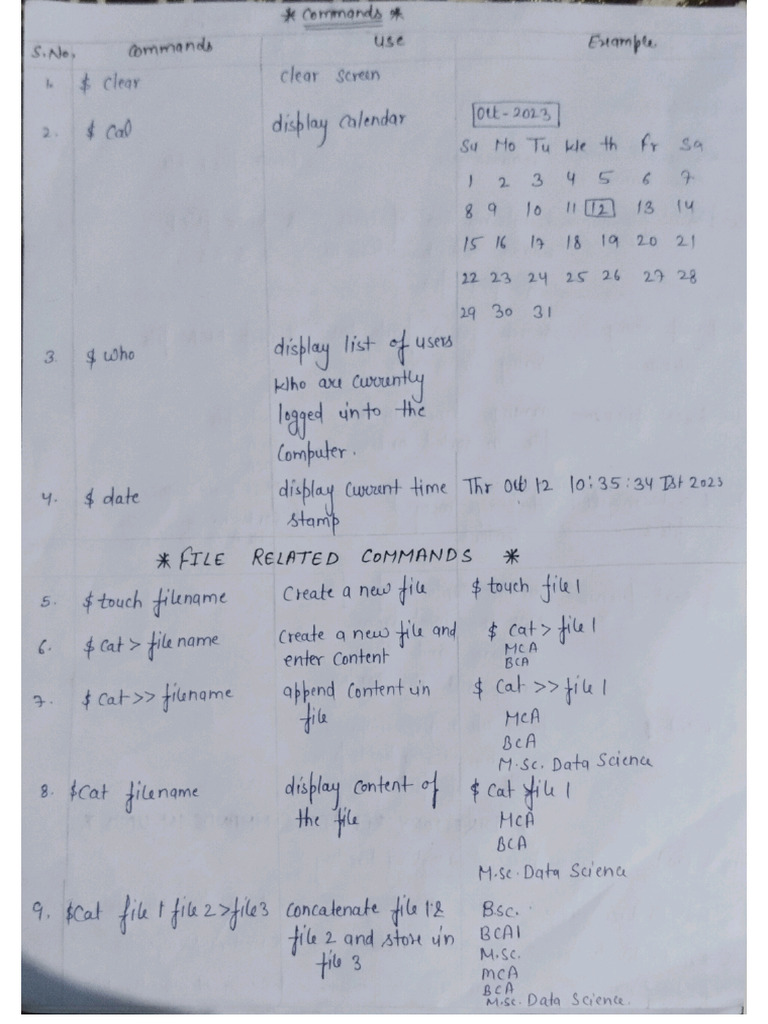 * Commands *
S.No. Commands Use Example
1. $ clear clear screen
2. $ cal display calendar Oct-2023
Su Mo Tu We th Fr Sa
1 2 3 4 5 6 7
8 9 10 11 12 13 14
15 16 17 18 19 20 21
22 23 24 25 26 27 28
29 30 31
3. $ who display list of users
who are currently
logged into the
Computer.
4. $ date display current time Thr Oct 12 10:35:34 Ist 2023
stamp
* FILE RELATED COMMANDS *
5. $ touch filename Create a new file $ touch file 1
6. $ Cat > file name Create a new file and $ cat > file 1
enter Content MCA
BCA
7. $ Cat >> filename append Content in $ Cat >> file 1
file MCA
BCA
M.Sc. Data Science
8. $Cat filename display content of $ Cat file 1
the file MCA
BCA
M.Sc. Data Science
9. $Cat file 1 file 2 > file 3 concatenate file 1 & Bsc.
file 2 and store in BCA1
file 3 M.Sc.
MCA
BCA
M.Sc. Data Science.